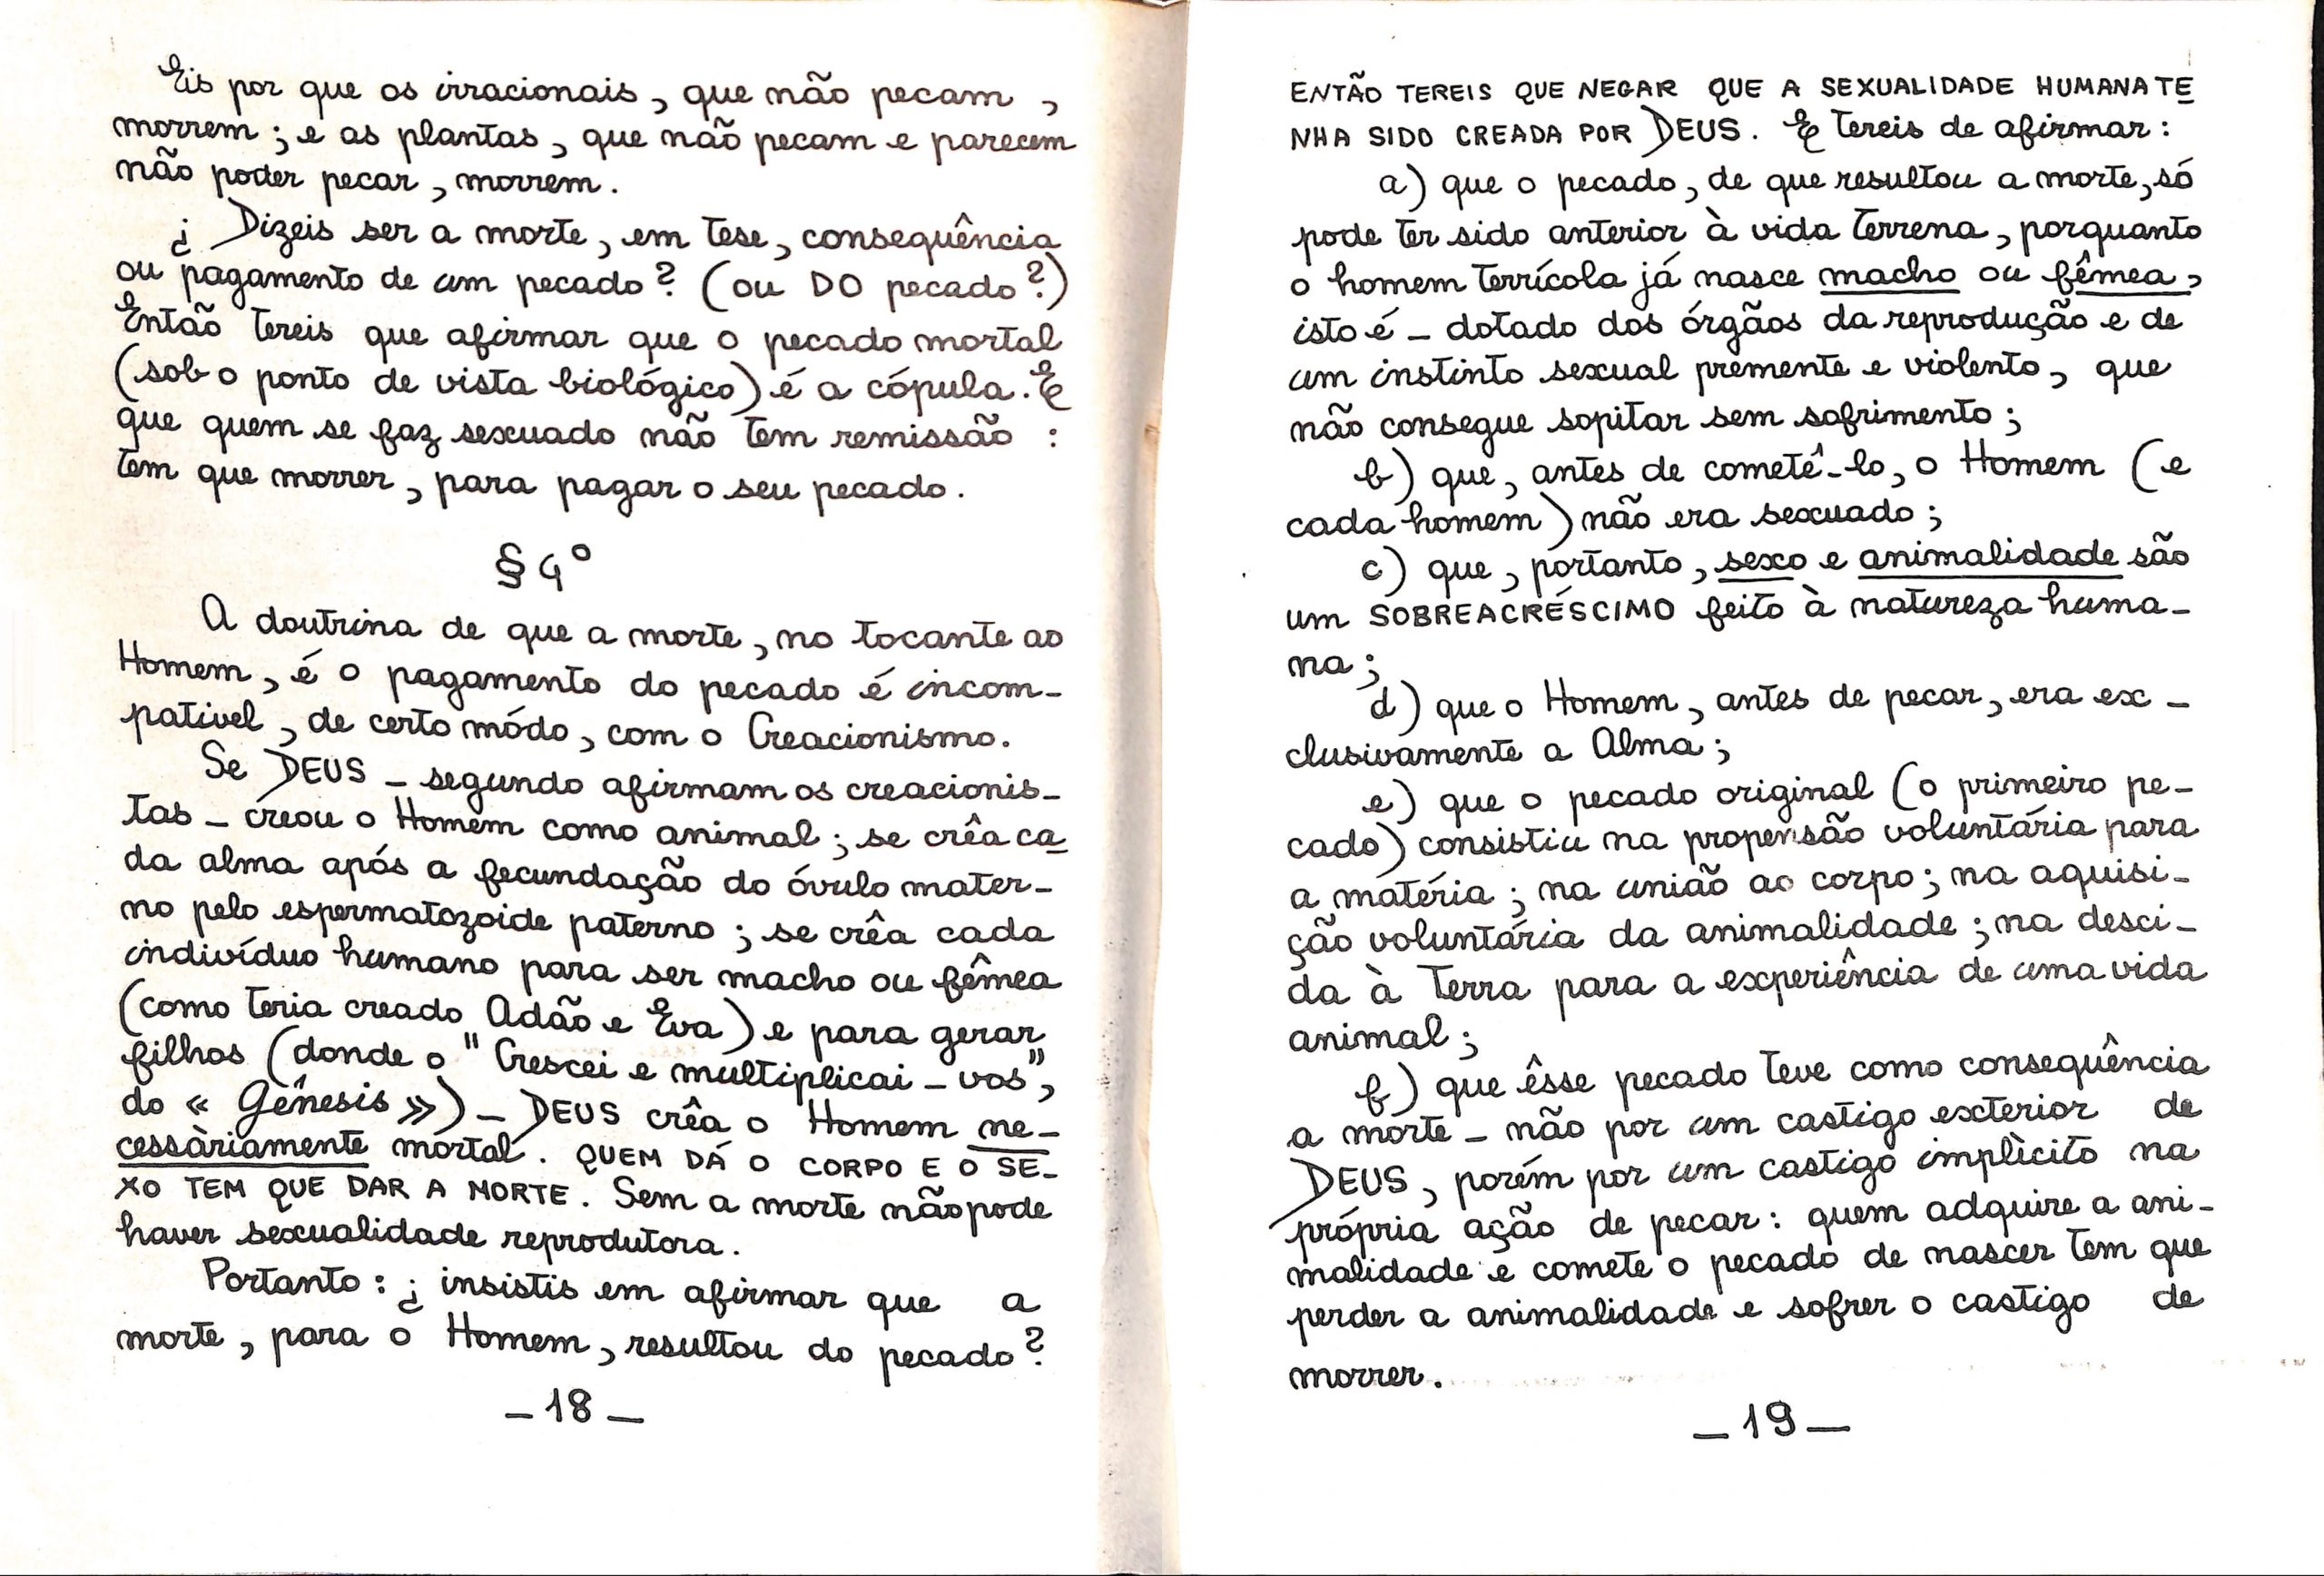 Eis por que os irracionais, que não pecam,
morrem; e as plantas, que não pecam e parecem
não poder pecar, morrem.
¿ Dizeis ser a morte, em tese, consequência
ou pagamento de um pecado? (ou DO pecado?)
Então tereis que afirmar que o pecado mortal
(sob o ponto de vista biológico) é a cópula. E
que quem se faz sexuado não tem remissão:
tem que morrer, para pagar o seu pecado.
§ 4º
A doutrina de que a morte, no tocante ao
Homem, é o pagamento do pecado é incom-
patível, de certo módo, com o Creacionismo.
Se DEUS - segundo afirmam os creacionis-
tas - creou o Homem como animal; se crêa ca
da alma após a fecundação do óvulo mater-
no pelo espermatozoide paterno; se crêa cada
indivíduo humano para ser macho ou fêmea
(como teria creado Adão e Eva) e para gerar
filhos (donde o "Crescei e multiplicai-vos",
do «Gênesis») - DEUS crêa o Homem ne-
cessàriamente mortal. QUEM DÁ O CORPO E O SE-
XO TEM QUE DAR A MORTE. Sem a morte não pode
haver sexualidade reprodutora.
Portanto: ¿ insistis em afirmar que a
morte, para o Homem, resultou do pecado?
-18-
ENTÃO TEREIS QUE NEGAR QUE A SEXUALIDADE HUMANA TE
NHA SIDO CREADA POR DEUS. E tereis de afirmar:
a) que o pecado, de que resultou a morte, só
pode ter sido anterior à vida terrena, porquanto
o homem terrícola já nasce macho ou fêmea,
isto é - dotado dos órgãos da reprodução e de
um instinto sexual premente e violento, que
não consegue sopitar sem sofrimento;
b) que, antes de cometê-lo, o Homem (e
cada homem) não era sexuado;
c) que, portanto, sexo e animalidade são
um SOBREACRÉSCIMO feito à natureza huma-
na;
d) que o Homem, antes de pecar, era ex-
clusivamente a Alma;
e) que o pecado original (o primeiro pe-
cado) consistiu na propensão voluntária para
a matéria; na união ao corpo; na aquisi-
ção voluntária da animalidade; na desci-
da à Terra para a experiência de uma vida
animal;
f) que êsse pecado teve como consequência
a morte - não por um castigo exterior de
DEUS, porém por um castigo implìcito na
própria ação de pecar: quem adquire a ani-
malidade e comete o pecado de nascer tem que
perder a animalidade e sofrer o castigo de
morrer.
-19-